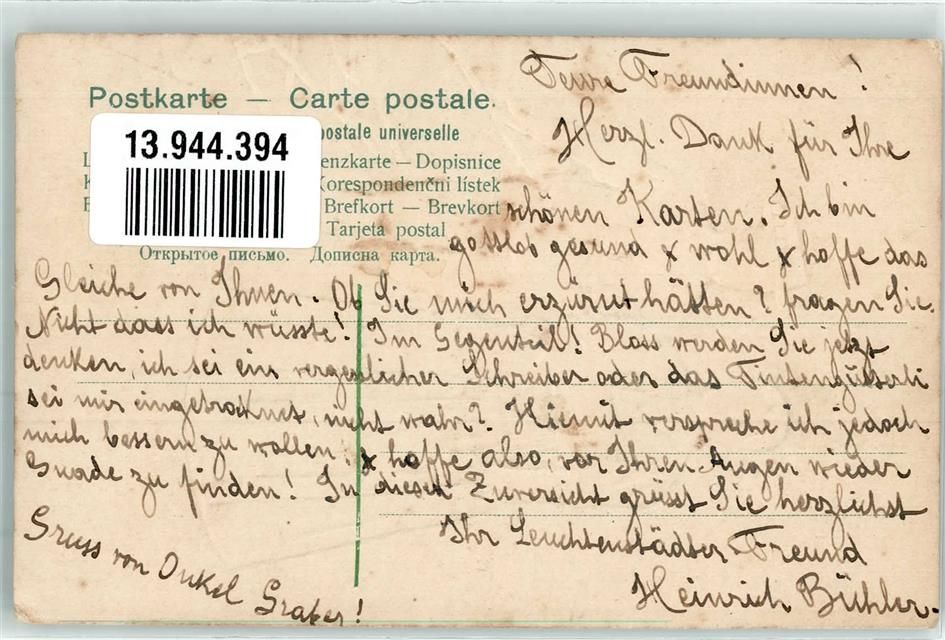 Postkarte — Carte postale.
13.944.394
postale universelle
enzkarte — Dopisnice
Korespondenční lístek
Brefkort — Brevkort
Tarjeta postal
Открытое письмо. Дописна карта.
Teure Freundinnen!
Herzl. Dank für Ihre
schönen Karten. Ich bin
gottlob gesund & wohl & hoffe das
Gleiche von Ihnen. Ob Sie mich erzürnt hätten? fragen Sie.
Nicht dass ich wüsste! Im Gegenteil! Bloss werden Sie jetzt
denken, ich sei ein vergesslicher Schreiber oder das Tintengütterli
sei mir eingetrocknet, nicht wahr? Hiemit verspreche ich jedoch
mich bessern zu wollen, & hoffe also, vor Ihren Augen wieder
Gnade zu finden! In dieser Zuversicht grüsst Sie herzlichst
Ihr Leuchtenstädter Freund
Heinrich Bühler.
Gruss von Onkel
Graber!